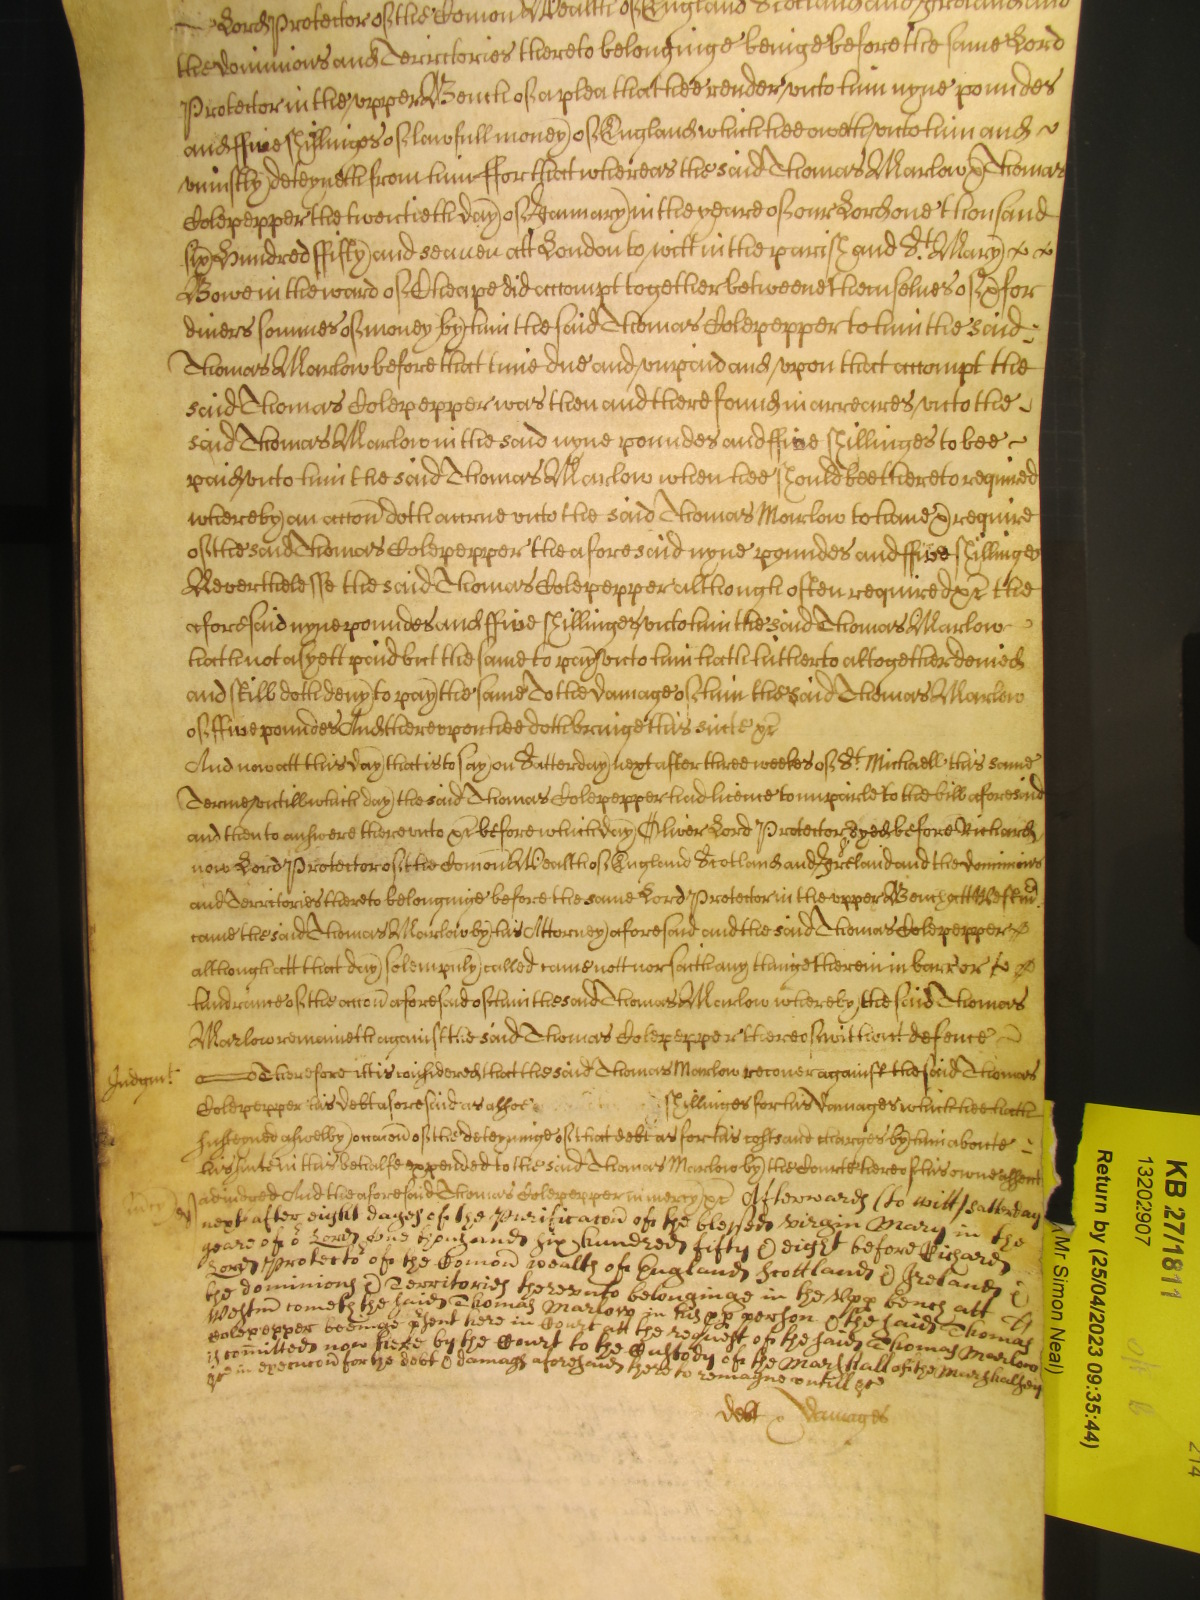 Lord Protector of the Comon Wealth of England Scotland and Ireland and
the dominions and Territories thereto belonginge beinge before the same Lord
Protector in the upper Bench of a plea that hee render unto him nyne poundes
and ffive shillinges of lawfull money of England which hee oweth unto him and
uniustly deteyneth from him ffor that whereas the said Thomas Marlow & Thomas
Colepepper the twentieth day of January in the yeare of our Lord one thousand
six hundred ffifty and seaven att London to witt in the parish and St. Mary
Bowe in the ward of Cheape did accompt together betweene themselves of & for
divers sommes of money by him the said Thomas Colepepper to him the said
Thomas Marlow before that time due and unpaid and upon that accompt the
said Thomas Colepepper was then and there found in arreares unto the
said Thomas Marlow in the said nyne poundes and ffive shillinges to bee
paid unto him the said Thomas Marlow when hee should bee thereto required
whereby an accon doth accrue unto the said Thomas Marlow to have & require
of the said Thomas Colepepper the aforesaid nyne poundes and ffive shillinges
Neverthelesse the said Thomas Colepepper although often required &c the
aforesaid nyne poundes and ffive shillinges unto him the said Thomas Marlow
hath not as yett paid but the same to pay unto him hath hitherto altogether denied
and still doth deny to pay the same To the damage of him the said Thomas Marlow
of ffive poundes And thereupon hee doth bringe this suite &c
And now att this day that is to say on Satterday next after three weekes of St. Michaell this same
Terme untill which day the said Thomas Colepepper had licence to imparle to the bill aforesaid
and then to answere thereunto &c before which day Oliver Lord Protector dyed before Richard
now Lord Protector of the Comon Wealth of England Scotland and Ireland and the dominions
and Territories thereto belonginge before the same Lord Protector in the upper Bench att Westm
came the said Thomas Marlow by his Attorney aforesaid and the said Thomas Colepepper
although att that day solempnly called came nott nor saith any thinge therein in barr or
hindrance of the accon aforesaid of him the said Thomas Marlow whereby the said Thomas
Marlow remaineth against the said Thomas Colepepper thereof without defence
Judgmt Therefore itt is considered that the said Thomas Marlow recover against the said Thomas
Colepepper his debt aforesaid as alsoe shillinges for his damages which hee hath
susteyned aswell by occacon of the deteyninge of that debt as for his costs and charges by him aboute
his suite in this behalfe expended to the said Thomas Marlow by the Courte hereof his owne assent
adiudged And the aforesaid Thomas Colepepper in mercy &c Afterwards (to witt) satterday
next after eight dayes of the Purificacon of the blessed virgin Mary in the
yeare of or Lord One thousand six hundred fifty & eight before Richard
Lord Protector of the Comon wealth of England Scottland & Ireland &
the dominions & Territories thereunto belonginge in the Upp bench att
Westm cometh the said Thomas Marlow in his pp person & the said Thomas
Colepepper beeinge psent here in Court att the request of the said Thomas Marlow
is comitted now here by the Court to the Custody of the Marshall of the Marshalsey
&c in execucon for the debt & damages aforesaid there to remayne untill &c
debt damages
KB 27/1811
13202907
Return by (25/04/2023 09:35:44)
Mr Simon Neal)
214